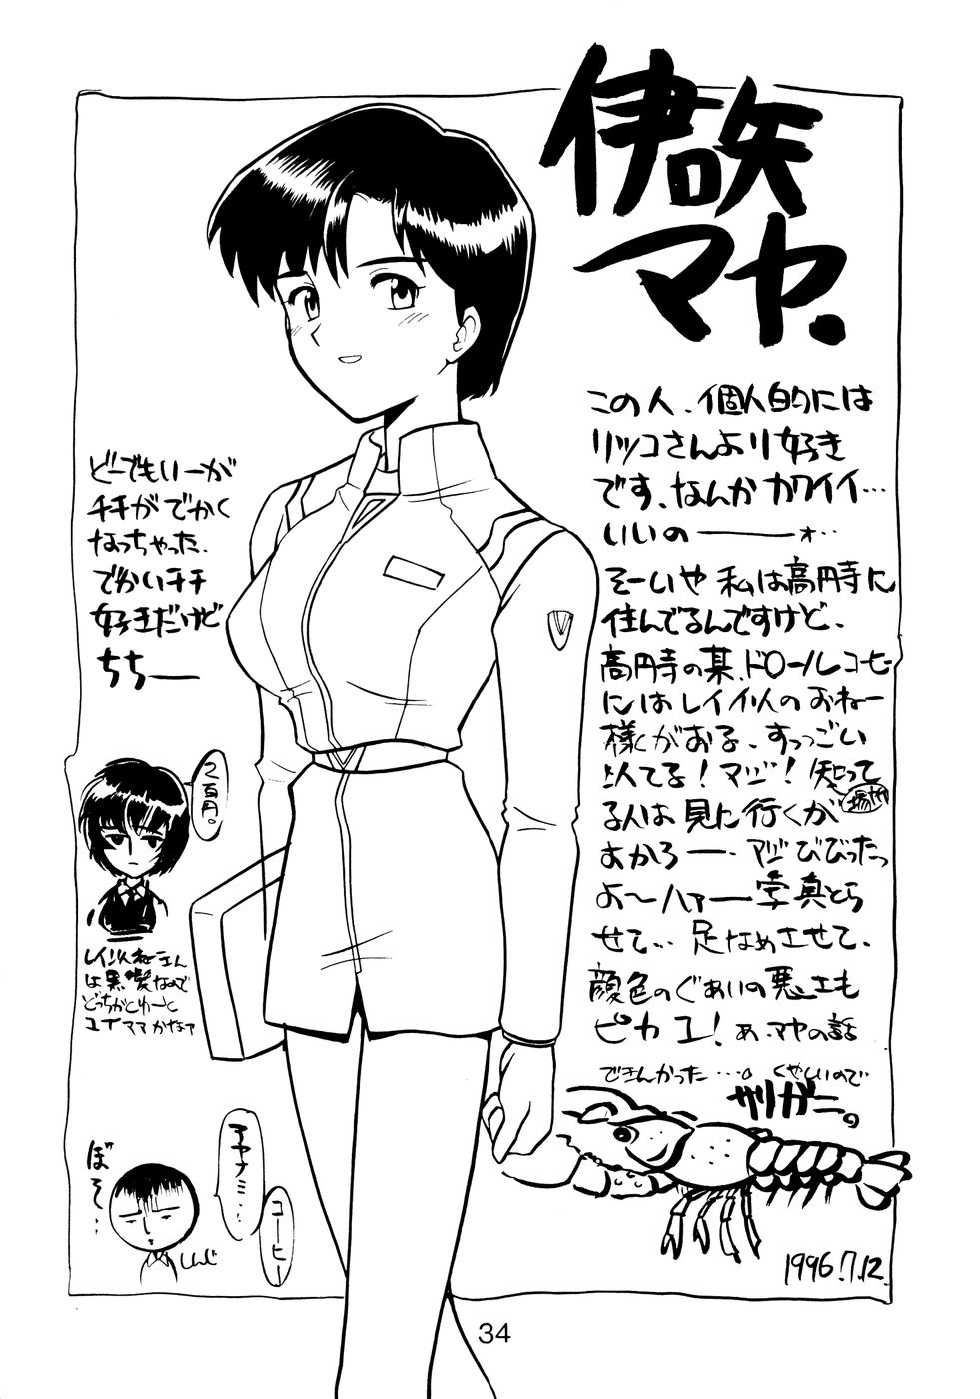 伊吹
マヤ.
この人、個人的には
リツコさんより好き
です、なんか カワイイ…
いいの――ォ…
そーいや 私は高円寺に
住んでるんですけど、
高円寺の某、ドロールコーヒー
にはレイ似のおねー
様がおる、すっっごい
似てる! マジ! 知って
場所
る人は見に行くが
よかろー、マジびびったっ
よ～ハァー写真とら
せて… 足なめさせて、
顔色のぐあいの悪さも
ピカ ユ! あ、マヤの話
できんかった…。くやしいので
ザリガニ。
1996.7.12.
どーでもいーが
チチがでかく
なっちゃった、
でかいチチ
好きだけど
ちちー
2百円。
レイ似ねーさん
は黒髪なので
どっちかとゆーと
ユイママかなァ
ぼそ…
アヤナミ…
コーヒー
しんじ
34